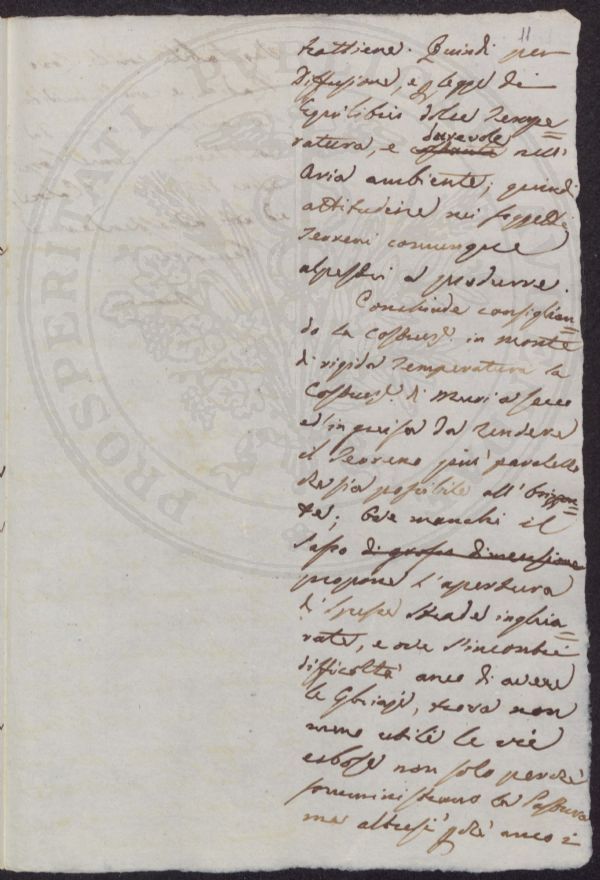 11
trattiene. Quindi per
Diffusione, e p leggi di
Equilibrio dolce Tempe=
ratura, e costante durevole nell'
Aria ambiente; quindi
attitudine nei soggetti
Terreni comunque
alpestri a produrre.
Conchiude consiglian=
do la Costruz. in monte
di rigida Temperatura la
Costruz. di Muri a secco
ed in guisa da rendere
il Terreno più paralello
che sia possibile all'Orizzon=
te; Ove manchi il
Sasso di grossa dimensione
propone l'apertura
di spesse strade inghia=
rate, e ove s'incontri
difficoltà anco di avere
le Ghiaje, trova non
meno utili le vie
erbose non solo perchè
somministrano la Pastura
ma altresì p chè anco i
PROSPERITATI